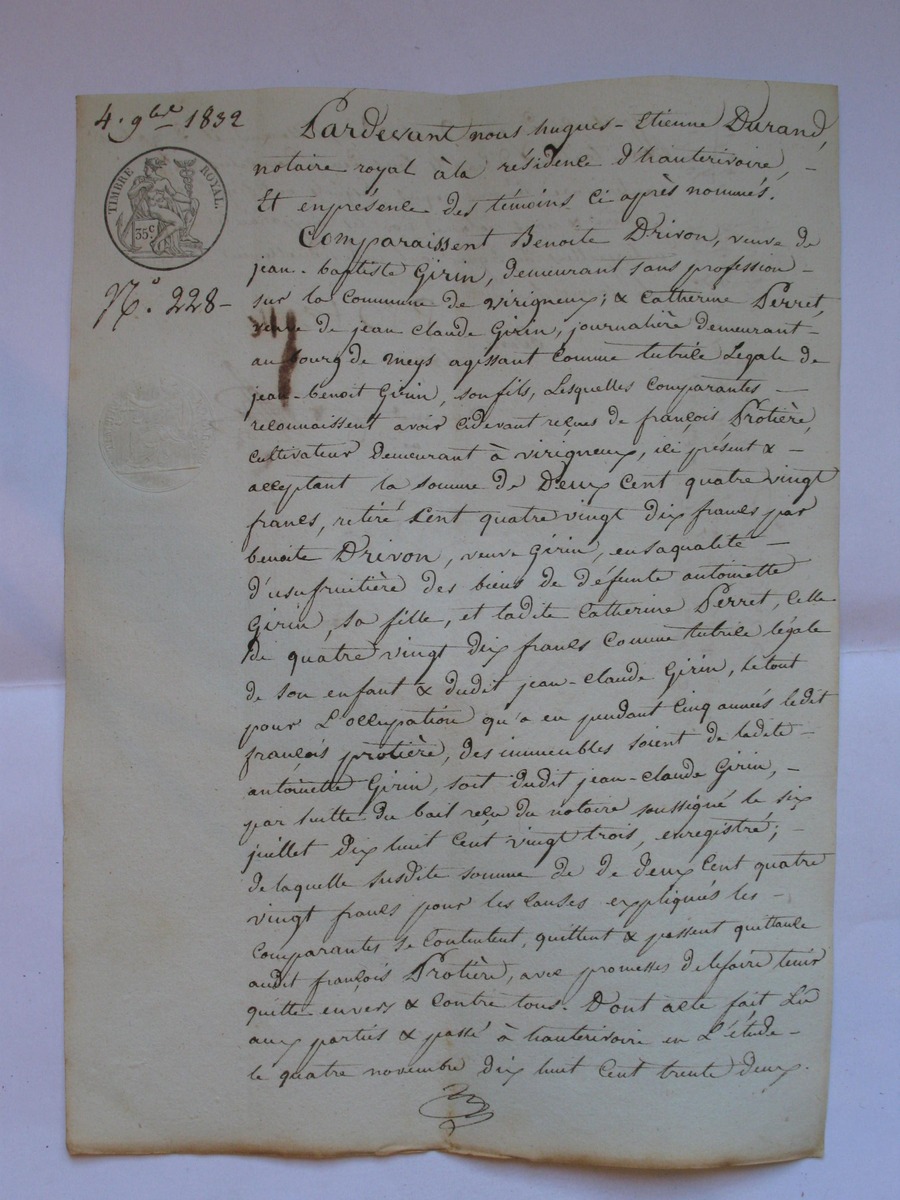 4. 9bre 1832
TIMBRE ROYAL.
35c
N°. 228-
Pardevant nous hugues-Etienne Durand,
notaire royal à la résidence d'hauterivoire, -
Et en présence des témoins ci après nommés.
Comparaissent Benoite Drivon, veuve de
jean-baptiste Girin, demeurant sans profession -
sur la Commune de virigneux; & Catherine Perret,
veuve de jean Claude Girin, journalière demeurant -
au bourg de meys agissant Comme tutrice Légale de
jean-benoit Girin, son fils, Lesquelles Comparantes -
reconnaissent avoir cidevant reçues de françois Protière,
cultivateur demeurant à virigneux, ici présent & -
acceptant la somme de Deux Cent quatre vingt
francs, retiré Cent quatre vingt dix francs par
benoite Drivon, veuve Girin, en sa qualité -
d'usufruitière des biens de défunte antoinette
Girin, sa fille, et ladite Catherine Perret, Celle
de quatre vingt dix francs Comme tutrice légale
de son enfant & dudit jean-Claude Girin, le tout
pour L'occupation qu'a eu pendant Cinq années ledit
françois protière, des immeubles soient de ladite -
antoinette Girin, soit dudit jean-Claude Girin, -
par suitte du bail reçu du notaire soussigné le six
juillet dix huit Cent vingt trois, enregistré; -
de laquelle susdite somme de de deux Cent quatre
vingt francs pour les Causes expliqués les -
Comparantes se Contentent, quittent & passent quittance
audit françois Protière, avec promesses de le faire tenir
quitte envers & Contre tous. Dont acte fait Lu
aux parties & passé à hauterivoire en L'étude -
le quatre novembre dix huit Cent trente deux.